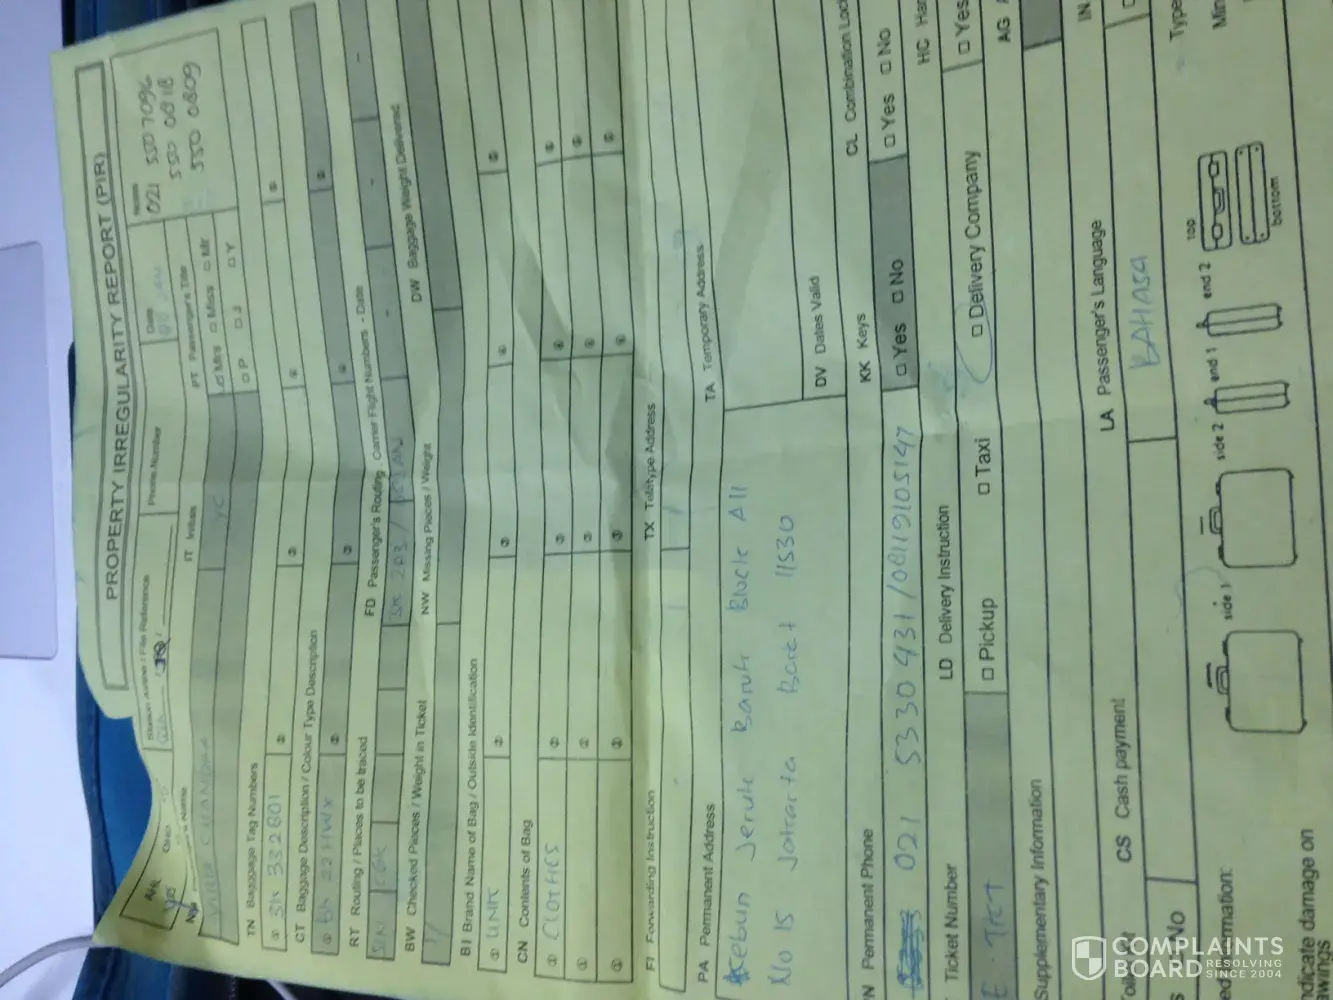 PROPERTY IRREGULARITY REPORT (PIR)
AHL
Station Airline / File Reference
Phone Number
Date
Notes
021 550 7096
550 0818
550 0809
Name
IT Initials
YC
PT Passenger's Title
Mrs □ Miss □ Mr
□ P □ J □ Y
CHANDRA
TN Baggage Tag Numbers
① 3K 332601 ② ③ ④ ⑤
CT Baggage Description / Colour Type Description
① BK 22 HWX ② ③ ④ ⑤
RT Routing / Places to be traced
FD Passenger's Routing Carrier Flight Numbers - Date
SIN CGK
3K 203 /
BW Checked Pieces / Weight in Ticket
NW Missing Pieces / Weight
DW Baggage Weight Delivered
BI Brand Name of Bag / Outside Identification
① UNIC ② ③ ④ ⑤
CN Contents of Bag
① CLOTHES ② ③ ④ ⑤
① ② ③ ④ ⑤
① ② ③ ④ ⑤
FI Forwarding Instruction
TX Teletype Address
PA Permanent Address
TA Temporary Address
Kebun Jeruk Baruh Block A11
No 15 Jakarta Barat 11530
DV Dates Valid
PN Permanent Phone
KK Keys
CL Combination Lock
021 5330 431 / 08119105147
□ Yes □ No
□ Yes □ No
Ticket Number
LD Delivery Instruction
HC
E TKT
□ Pickup □ Taxi □ Delivery Company
□ Yes
Supplementary Information
AG
CS Cash payment
LA Passenger's Language
IN
No
BAHASA
Type
side 1
side 2
end 1
end 2
top
bottom
indicate damage on
COMPLAINTS
BOARD
RESOLVING
SINCE 2004